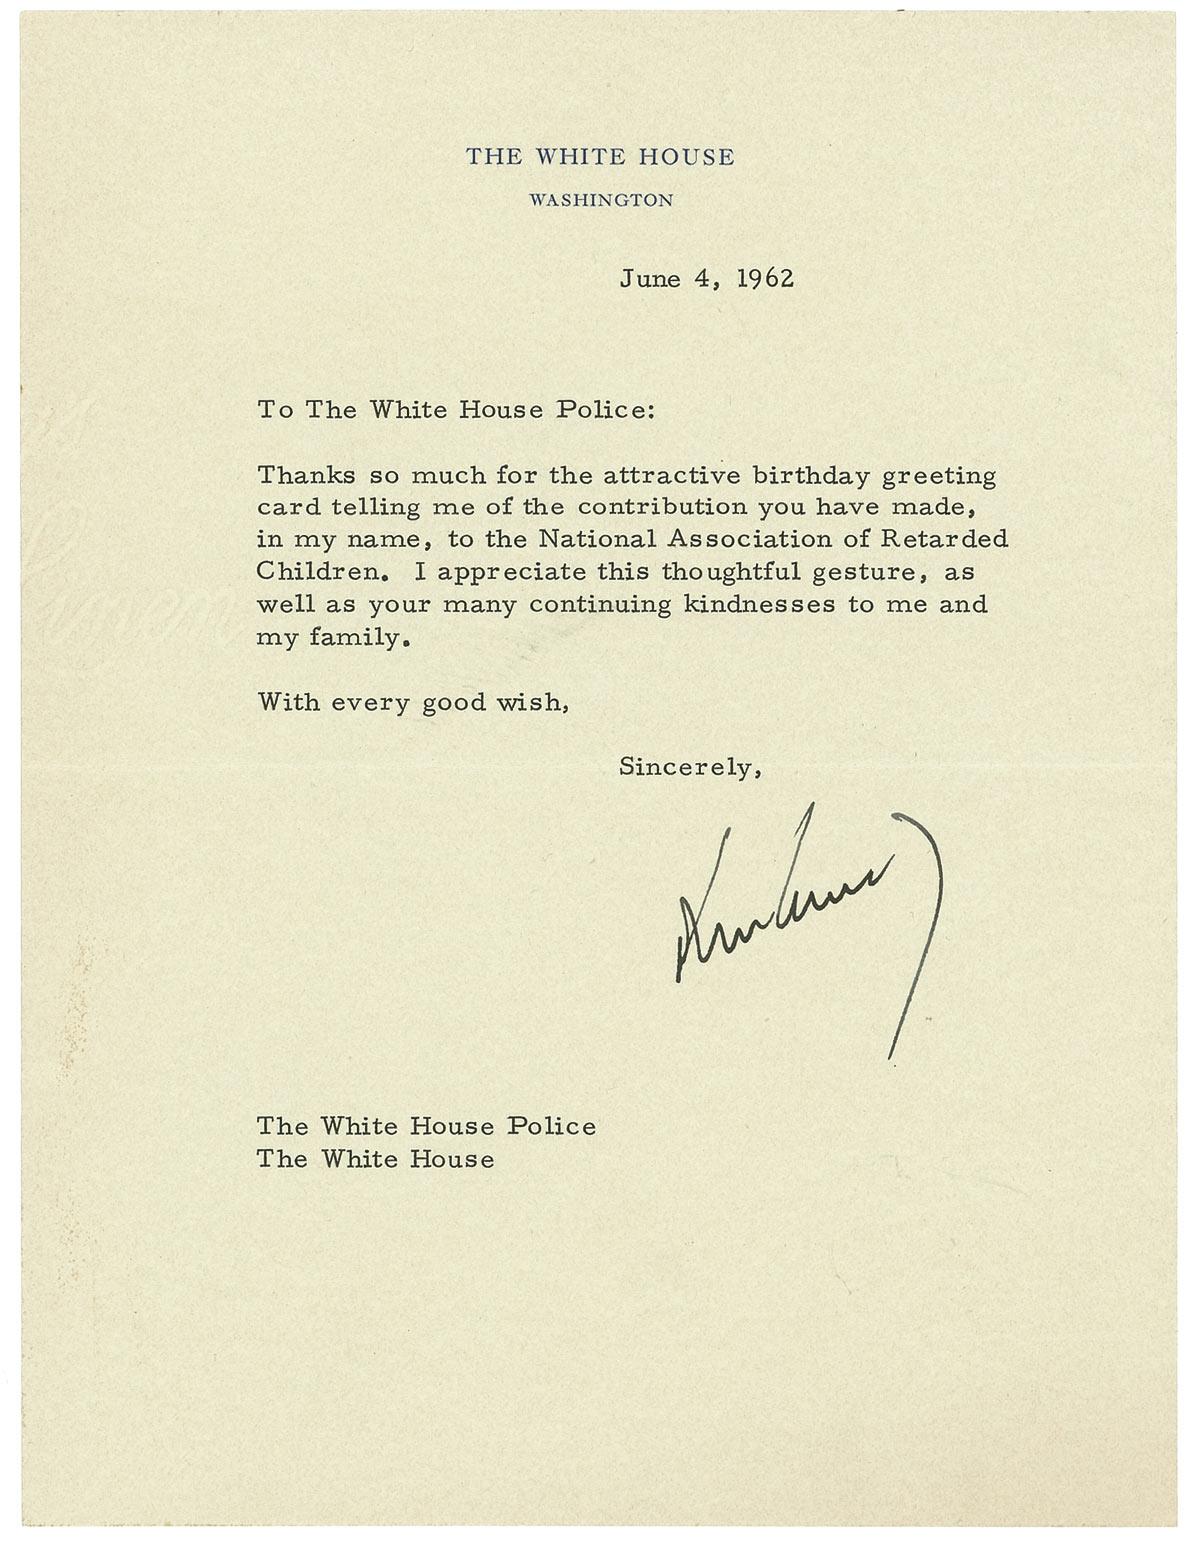 THE WHITE HOUSE
WASHINGTON
June 4, 1962
To The White House Police:
Thanks so much for the attractive birthday greeting
card telling me of the contribution you have made,
in my name, to the National Association of Retarded
Children. I appreciate this thoughtful gesture, as
well as your many continuing kindnesses to me and
my family.
With every good wish,
Sincerely,
The White House Police
The White House